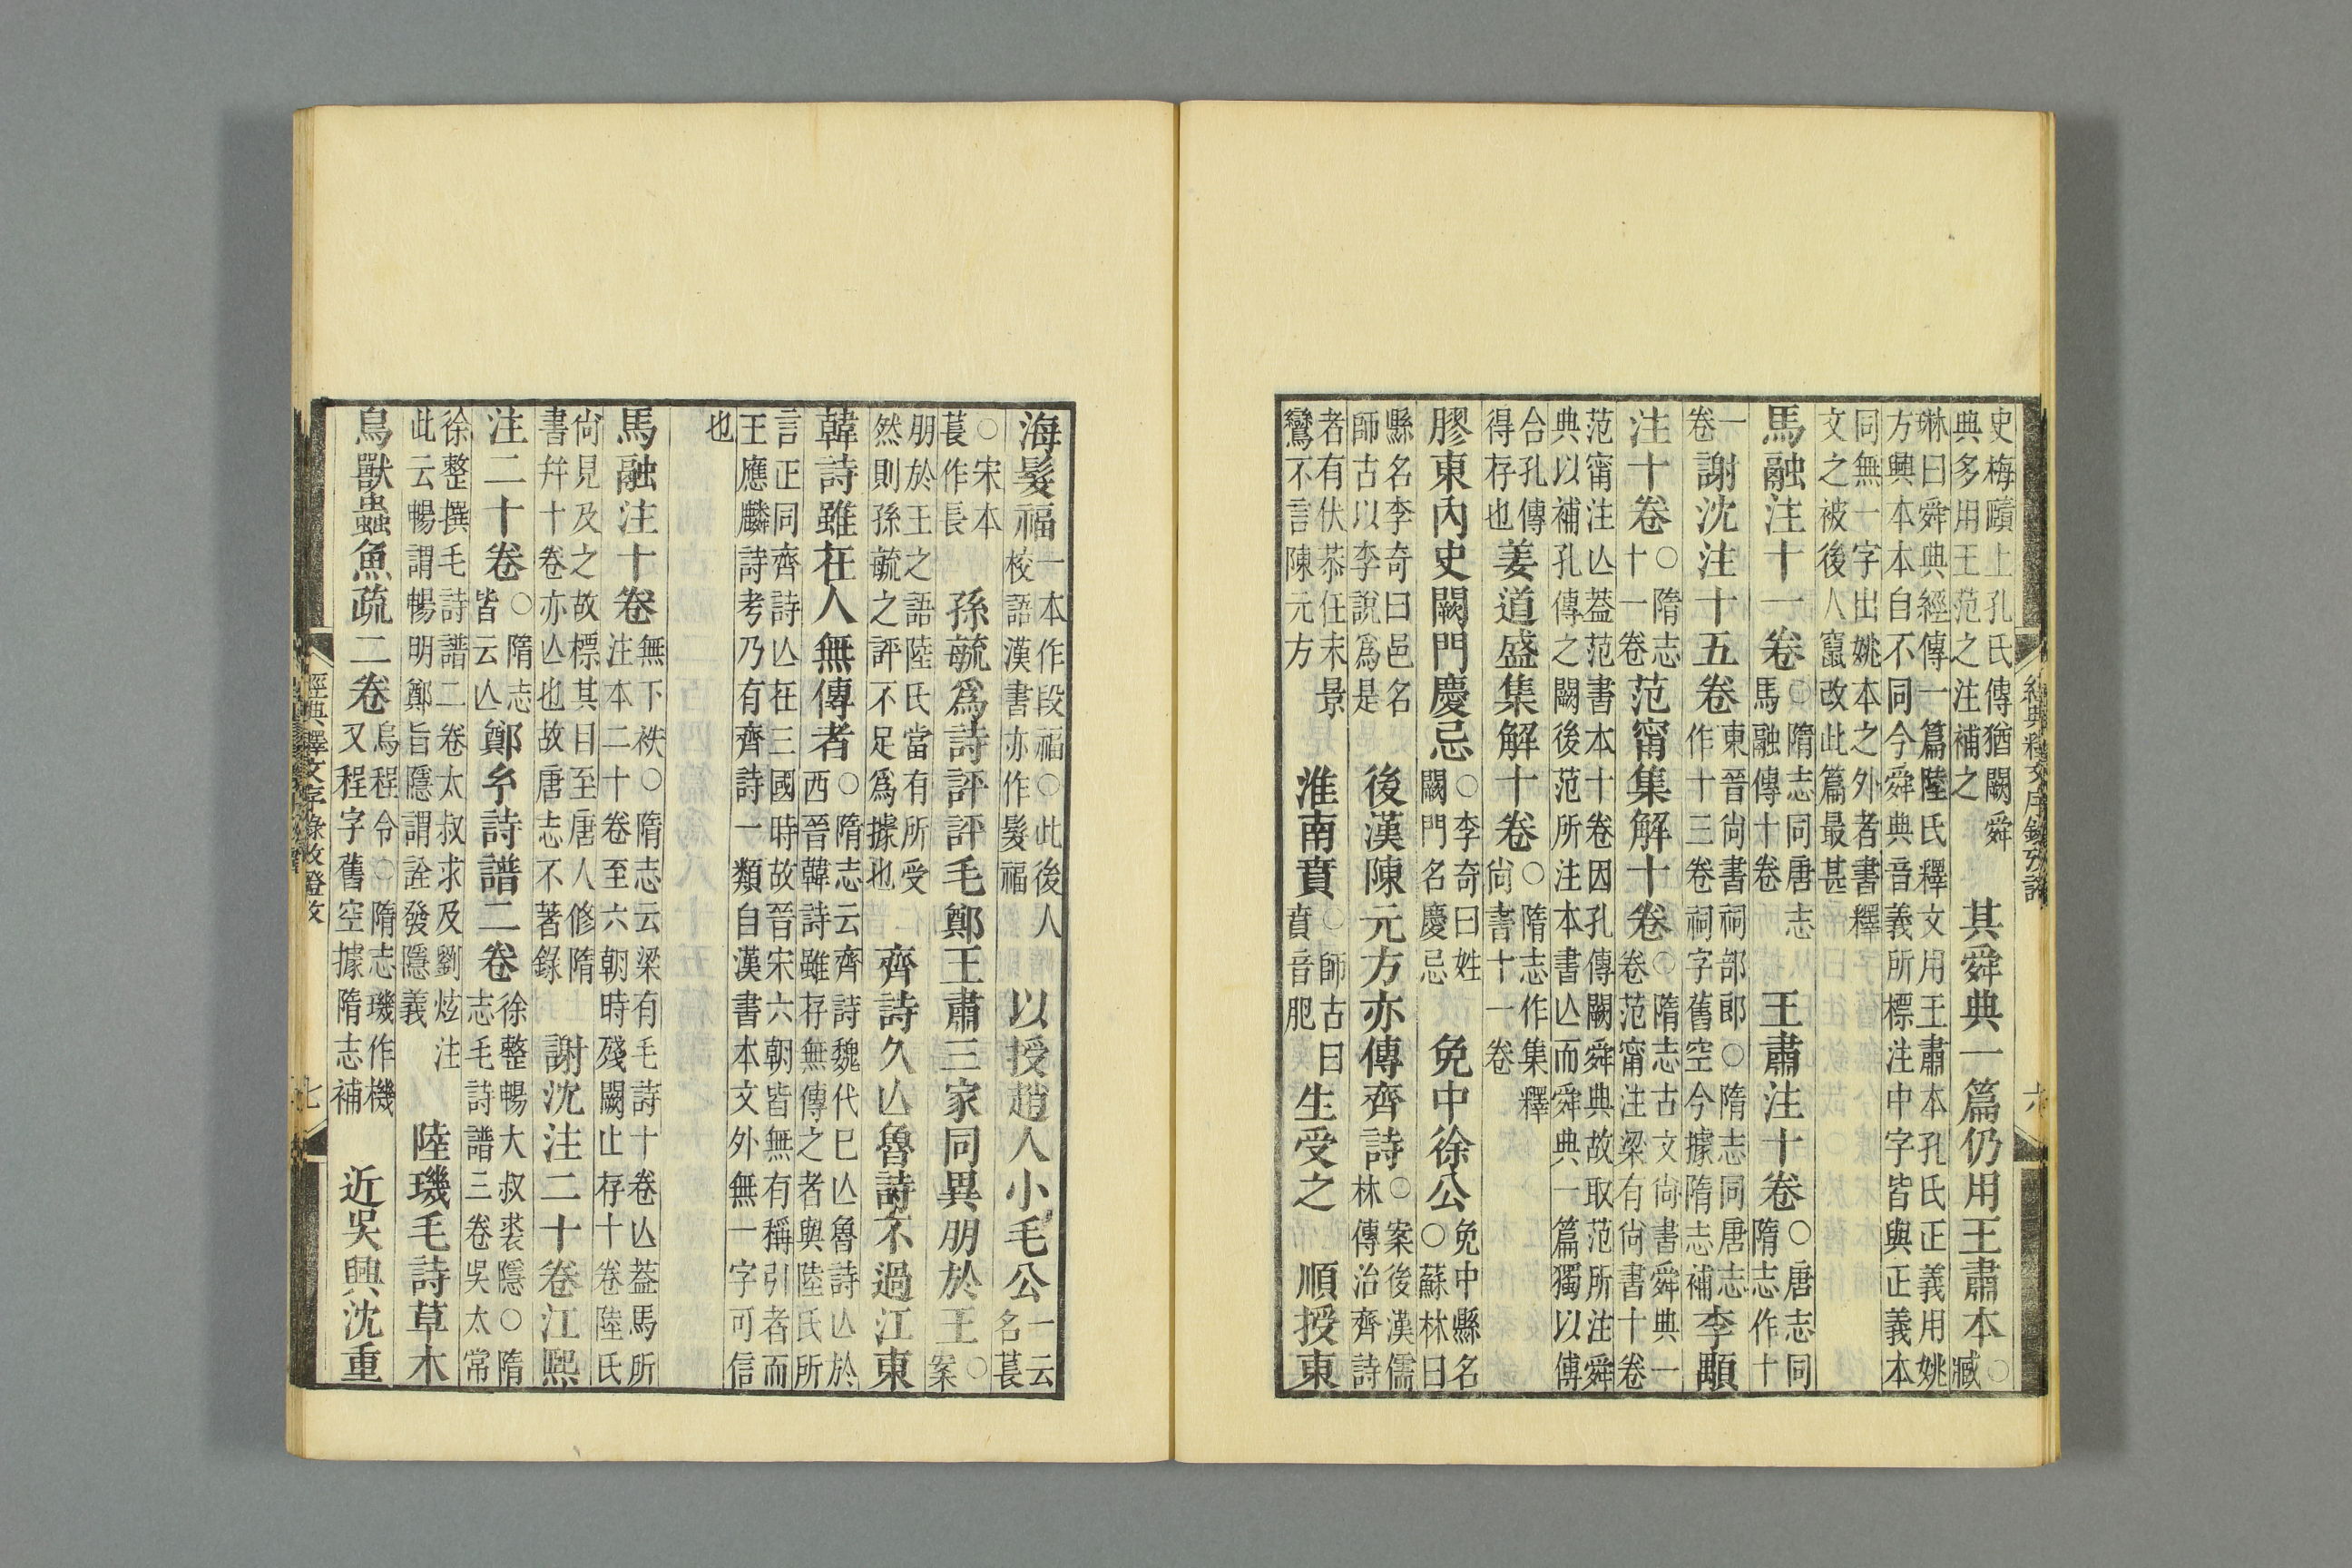 史梅賾上孔氏傳猶闕舜
典多用王范之注補之
其舜典一篇仍用王肅本
○
臧
琳曰舜典經傳一篇陸氏釋文用王肅本孔氏正義用姚
方興本本自不同今舜典音義所標注中字皆與正義本
同無一字出姚本之外者書釋
文之被後人竄改此篇最甚
馬融注十一卷
○隋志同唐志
馬融傳十卷
王肅注十卷
○唐志同
隋志作十
一
卷
謝沈注十五卷
東晉尚書祠部郎○隋志同唐志
作十三卷祠字舊空今據隋志補
李顒
注十卷
○隋志
十一卷
范甯集解十卷
○隋志古文尚書舜典一
卷范甯注梁有尚書十卷
范甯注亾葢范書本十卷因孔傳闕舜典故取范所注舜
典以補孔傳之闕後范所注本書亾而舜典一篇獨以傅
合孔傳
得存也
姜道盛集解十卷
○隋志作集釋
尚書十一卷
膠東內史闕門慶忌
○李奇曰姓
闕門名慶忌
免中徐公
免中縣名
○蘇林曰
縣名李奇曰邑名
師古以李說爲是
後漢陳元方亦傳齊詩
○案後漢儒
林傳治齊詩
者有伏恭任末景
鸞不言陳元方
淮南賁
○師古曰
賁音肥
生受之
順授東
經典釋文序錄攷證
六
海髮福
一本作段福○此後人
校語漢書亦作髮福
以授趙人小毛公
一云
名萇
○宋本
萇作長
孫毓爲詩評評毛鄭王肅三家同異朋於王
○
案
朋於王之語陸氏當有所受
然則孫毓之評不足爲據也
齊詩久亾魯詩不過江東
韓詩雖在人無傳者
○隋志云齊詩魏代已亾魯詩亾於
西晉韓詩雖存無傳之者與陸氏所
言正同齊詩亾在三國時故晉宋六朝皆無有稱引者而
王應麟詩考乃有齊詩一類自漢書本文外無一字可信
也
馬融注十卷
無下袟○隋志云梁有毛詩十卷亾葢馬所
注本二十卷至六朝時殘闕止存十卷陸氏
尚見及之故標其目至唐人修隋
書幷十卷亦亾也故唐志不著錄
謝沈注二十卷江熙
注二十卷
○隋志
皆云亾
鄭𤣥詩譜二卷
徐整暢大叔裘隱○隋
志毛詩譜三卷吳太常
徐整撰毛詩譜二卷太叔求及劉炫注
此云暢謂暢明鄭旨隱謂詮發隱義
陸璣毛詩草木
鳥獸蟲魚疏二卷
烏程令○隋志璣作機
又程字舊空據隋志補
近吳興沈重
經典釋文序錄攷證攷
七